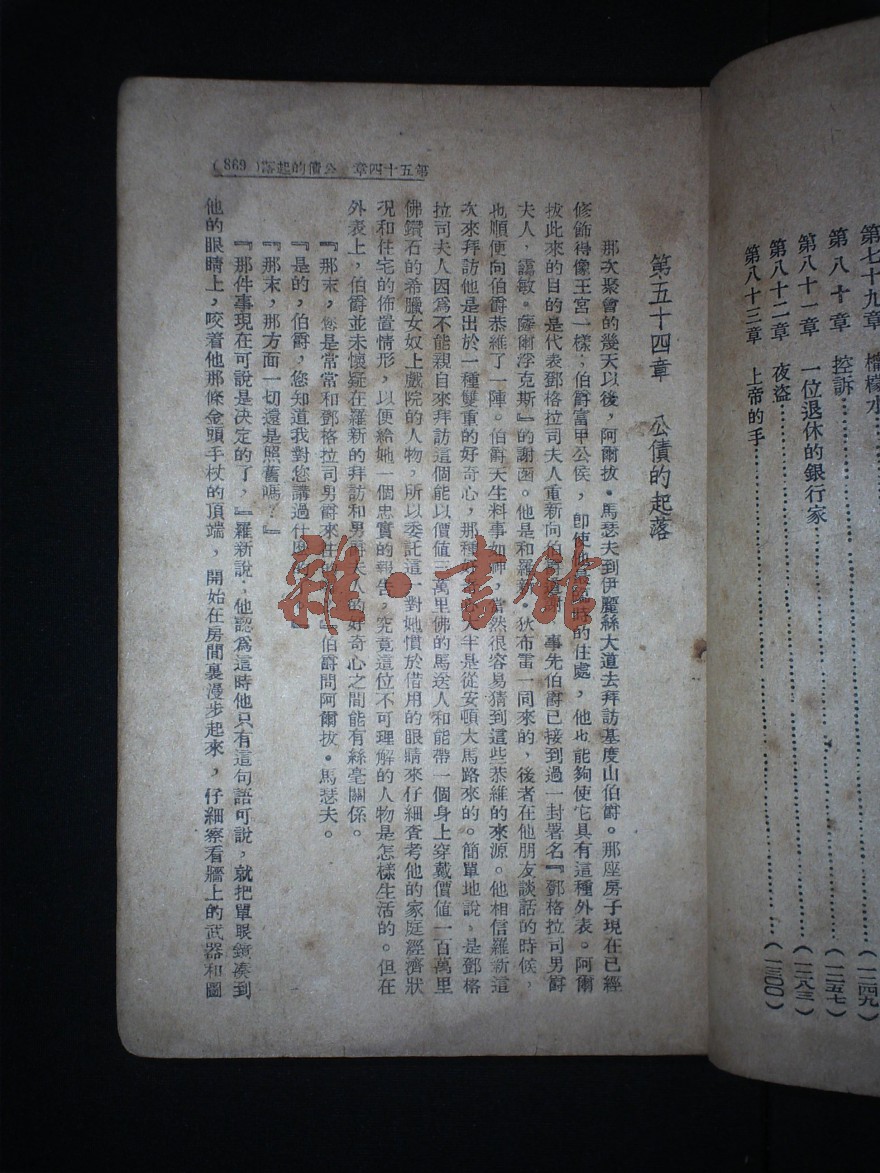 第七十九章 檸檬水……(一二四九)
第八十章 控訴……(一二五七)
第八十一章 一位退休的銀行家……
第八十二章 夜盜……(一二八三)
第八十三章 上帝的手……(一三〇〇)
第五十四章 公債的起落 (869)
第五十四章 公債的起落
那次聚會的幾天以後，阿爾拔·馬瑟夫到伊麗絲大道去拜訪基度山伯爵。那座房子現在已經
修飾得像王宮一樣；伯爵富甲公侯，卽使他暫時的住處，他也能夠使它具有這種外表。阿爾
拔此來的目的是代表鄧格拉司夫人重新向伯爵 事先伯爵已接到過一封署名『鄧格拉司男爵
夫人，靄敏·薩爾浮克斯』的謝函。他是和羅新·狄布雷一同來的，後者在他朋友談話的時候，
也順便向伯爵恭維了一陣。伯爵天生料事如 當然很容易猜到這些恭維的來源。他相信羅新這
次來拜訪他是出於一種雙重的好奇心，那種 大半是從安頓大馬路來的。簡單地說，是鄧格
拉司夫人因爲不能親自來拜訪這個能以價値三萬里佛的馬送人和能帶一個身上穿戴價値一百萬里
佛鑽石的希臘女奴上戲院的人物，所以委託這一對她慣於借用的眼睛來仔細查考他的家庭經濟狀
况和住宅的佈置情形，以便給她一個忠實的報告，究竟這位不可理解的人物是怎樣生活的。但在
外表上，伯爵並未懷疑在羅新的拜訪和男爵夫人的好奇心之間能有絲毫關係。
『那末，您是常常和鄧格拉司男爵來往 』伯爵問阿爾拔·馬瑟夫。
『是的，伯爵，您知道我對您講過什
『那末，那方面一切還是照舊嗎？』
『那件事現在可說是決定的了，』羅新說；他認爲這時他只有這句語可說，就把單眼鏡凑到
他的眼睛上，咬着他那條金頭手杖的頂端，開始在房間裏漫步起來，仔細察看牆上的武器和圖
雜·書館